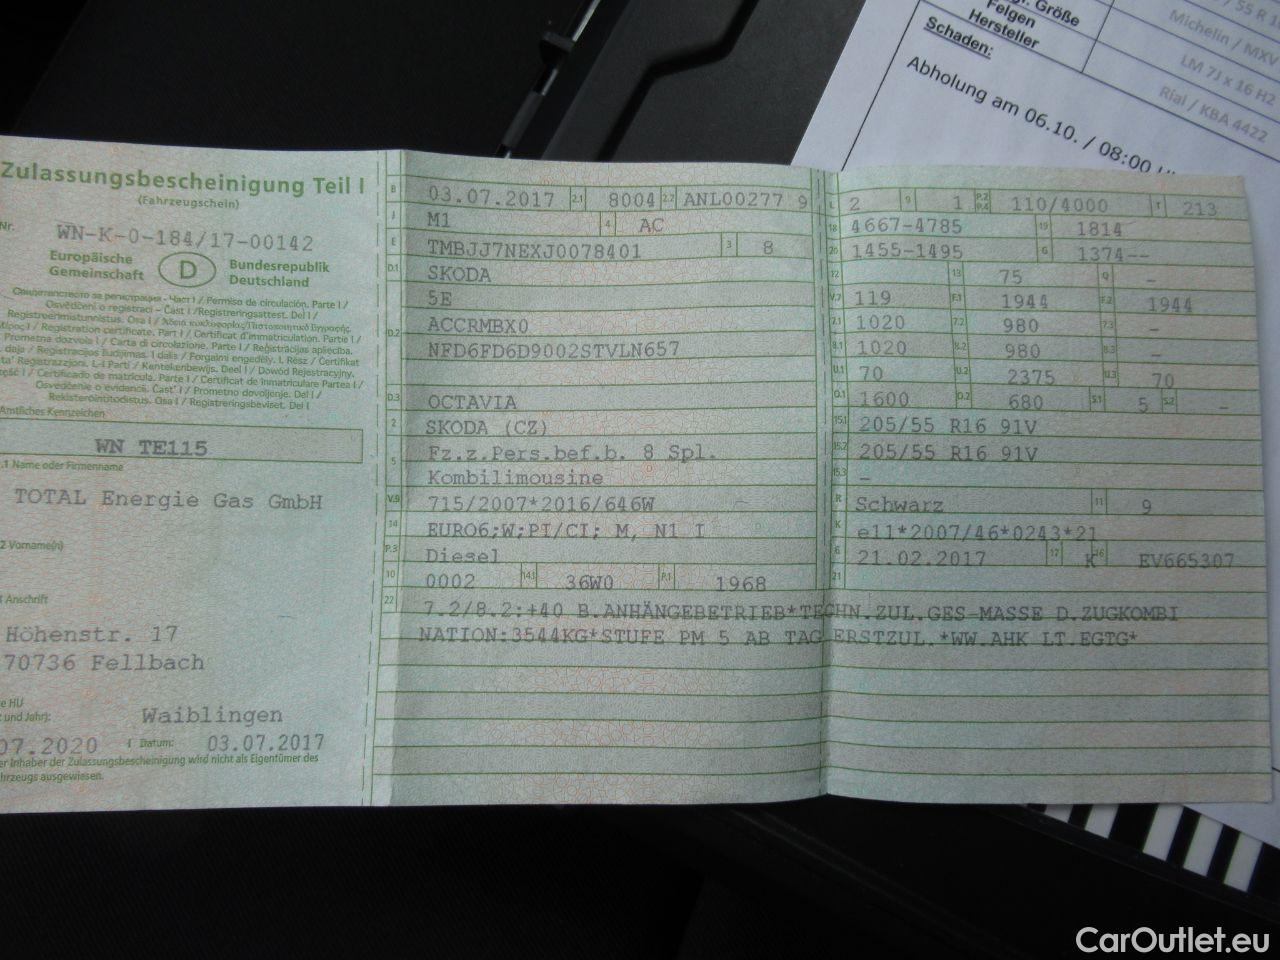 gl. Größe
Felgen
Hersteller
Schaden:
/ 55 R 1
Michelin / MXV
LM 7J x 16 H2
Rial / KBA 4422
Abholung am 06.10. / 08:00 U
Zulassungsbescheinigung Teil I
(Fahrzeugschein)
Nr. WN-K-0-184/17-00142
Europäische Gemeinschaft D Bundesrepublik Deutschland
Osvědčení o registraci – Část I / Registreringsattest. Del I /
Registreerimistunnistus. Osa I /
I / Registration certificate. Part I / Certificat d'immatriculation. Partie I /
Prometna dozvola I / Carta di circolazione. Parte I / Reģistrācijas apliecība.
Amtliches Kennzeichen
WN TE115
.1 Name oder Firmenname
TOTAL Energie Gas GmbH
2 Vorname(n)
3 Anschrift
Höhenstr. 17
70736 Fellbach
e HU
t und Jahr): Waiblingen
07.2020 I Datum: 03.07.2017
er Inhaber der Zulassungsbescheinigung wird nicht als Eigentümer des
ahrzeugs ausgewiesen.
B 03.07.2017 2.1 8004 2.2 ANL00277 9
J M1 4 AC
E TMBJJ7NEXJ0078401 3 8
D.1 SKODA
5E
D.2 ACCRMBX0
NFD6FD6D9002STVLN657
D.3 OCTAVIA
2 SKODA (CZ)
5 Fz.z.Pers.bef.b. 8 Spl.
Kombilimousine
V.9 715/2007*2016/646W
14 EURO6;W;PI/CI; M, N1 I
P.3 Diesel
10 0002 14.1 36W0 P.1 1968
L 2 9 1 P.2 P.4 110/4000 T 213
18 4667-4785 19 1814
20 1455-1495 G 1374--
12 13 75 Q -
V.7 119 F.1 1944 F.2 1944
7.1 1020 7.2 980 7.3 -
8.1 1020 8.2 980 8.3 -
U.1 70 U.2 2375 U.3 70
O.1 1600 O.2 680 S.1 5 S.2 -
15.1 205/55 R16 91V
15.2 205/55 R16 91V
15.3 -
R Schwarz 11 9
K e11*2007/46*0243*21
6 21.02.2017 17 K 16 EV665307
21
22 7.2/8.2:+40 B.ANHÄNGEBETRIEB*TECHN.ZUL.GES-MASSE D.ZUGKOMBI
NATION:3544KG*STUFE PM 5 AB TAG ERSTZUL.*WW.AHK LT.EGTG*
CarOutlet.eu